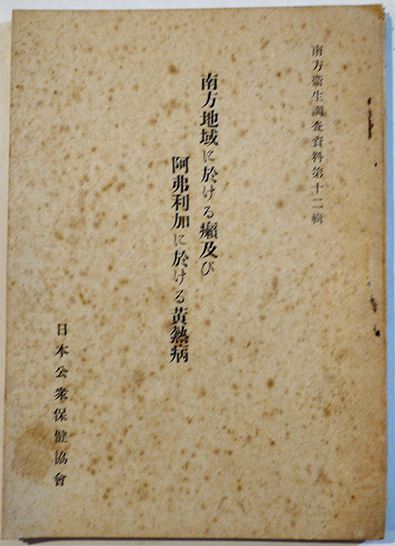 南方衞生調査資料第十二輯
南方地域に於ける癩及び
阿弗利加に於ける黃熱病
日本公衆保健協會